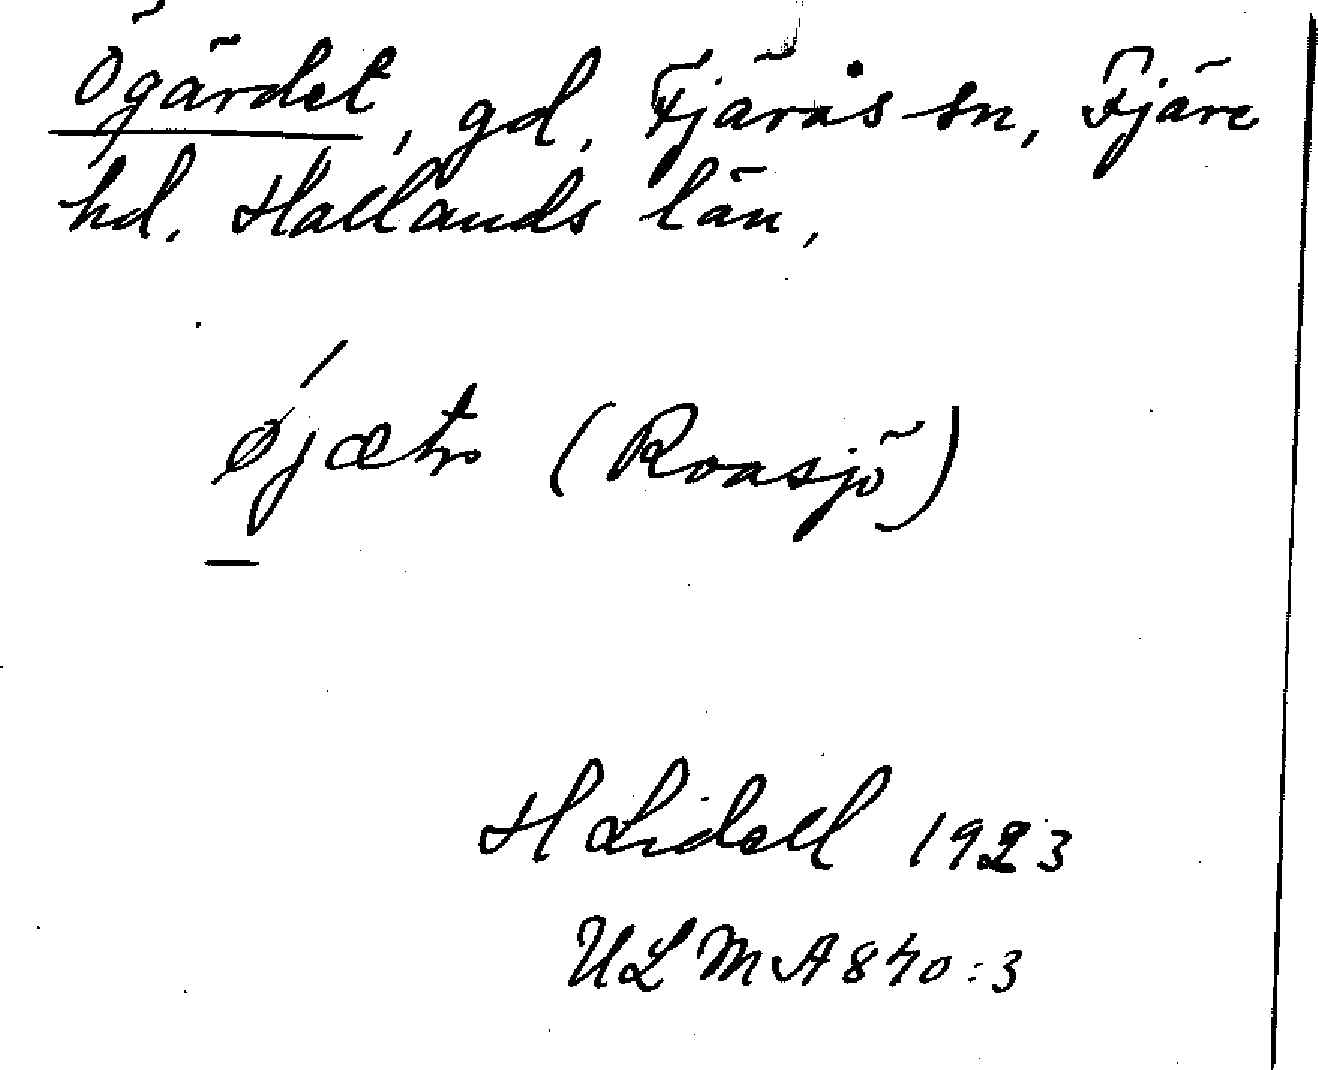 Ögärdet, gd, Fjärås sn, Fjäre
hd. Hallands län,
øjæṭɩ (Roasjö)
H Lidell 1923
ULMA 840:3